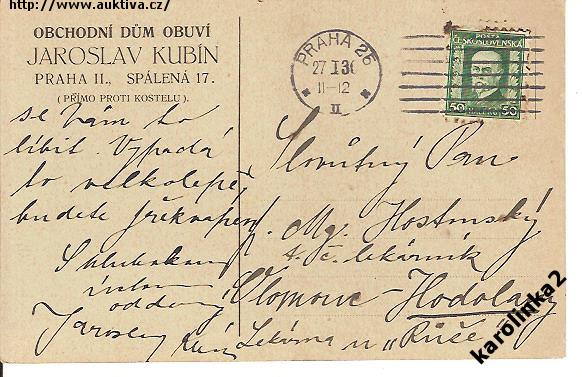 http://www.auktiva.cz/
OBCHODNÍ DŮM OBUVÍ
JAROSLAV KUBÍN
PRAHA II., SPÁLENÁ 17.
(PŘÍMO PROTI KOSTELU).
se Vám to
líbit. Vypadá
to velkolepě,
budete překvapen
S hlubokou
úctou
oddaný
Jaroslav Kubín
PRAHA 26
27 I 30
11-12
II
POSTA
ČESKOSLOVENSKÁ
50 50
Slovutný Pan
Mg. Hostinský
t. č. lékárník
Olomouc-Hodolany
Lekárna u „Růže"
karolinka2